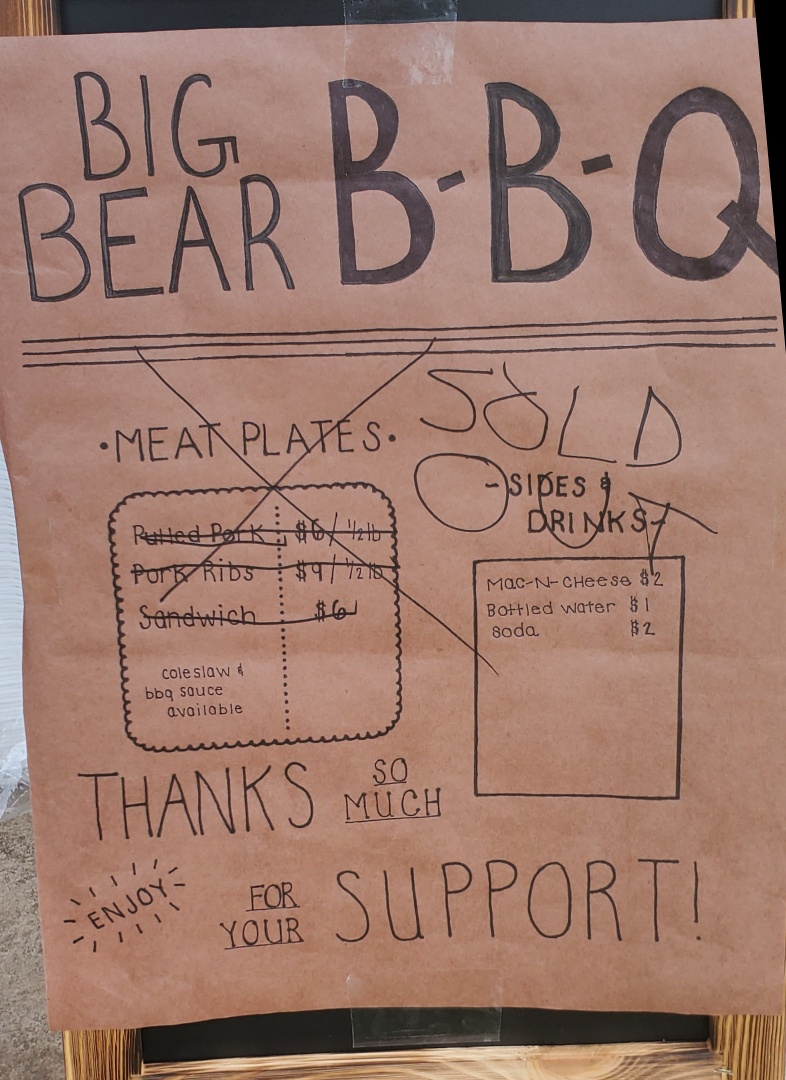 BIG
BEAR B-B-Q
SOLD
OUT
•MEAT PLATES•
Pulled Pork $6/½lb
Pork Ribs $9/½lb
Sandwich $6
coleslaw &
bbq sauce
available
-SIDES &
DRINKS-
Mac-N-Cheese $2
Bottled water $1
soda $2
THANKS SO
MUCH
ENJOY
FOR
YOUR SUPPORT!